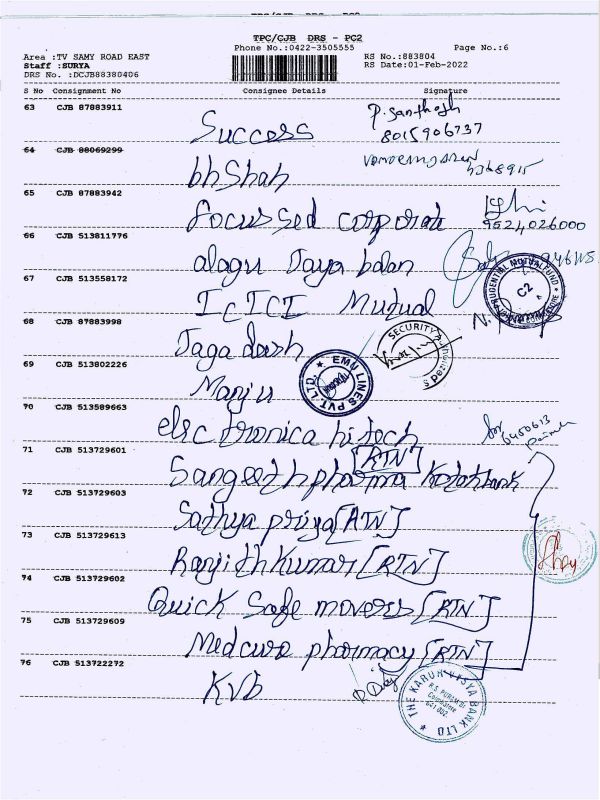 TPC/CJB DRS - PC2
Phone No.:0422-3505555 Page No.:6
Area :TV SAMY ROAD EAST RS No.:883804
Staff :SURYA RS Date:01-Feb-2022
DRS No. :DCJB88380406
S No Consignment No Consignee Details Signature
63 CJB 87883911 P. Santhosh
Success 8015906737
64 CJB 88069299
bhShah
65 CJB 87883942
focussed corporate 9524026000
66 CJB 513811776
alagu Jaya balan
67 CJB 513558172 PRUDENTIAL MUTUAL FUND C2
ICICI Mutual
68 CJB 87883998 SECURITY
Jagadash
69 CJB 513802226 EMU LINES PVT. LTD.
Manju
70 CJB 513589663
electronica hitech
71 CJB 513729601 [RTN]
Sangeeth pharma Kotak bank
72 CJB 513729603
Sathya priya [RTN]
73 CJB 513729613
Ranjith Kumar [RTN]
74 CJB 513729602
Quick Safe movers [RTN]
75 CJB 513729609
Medcura pharmacy [RTN]
76 CJB 513722272
KVb
THE KARUR VYSYA BANK LTD
R.S. PURAM Br
Coimbatore
641 002